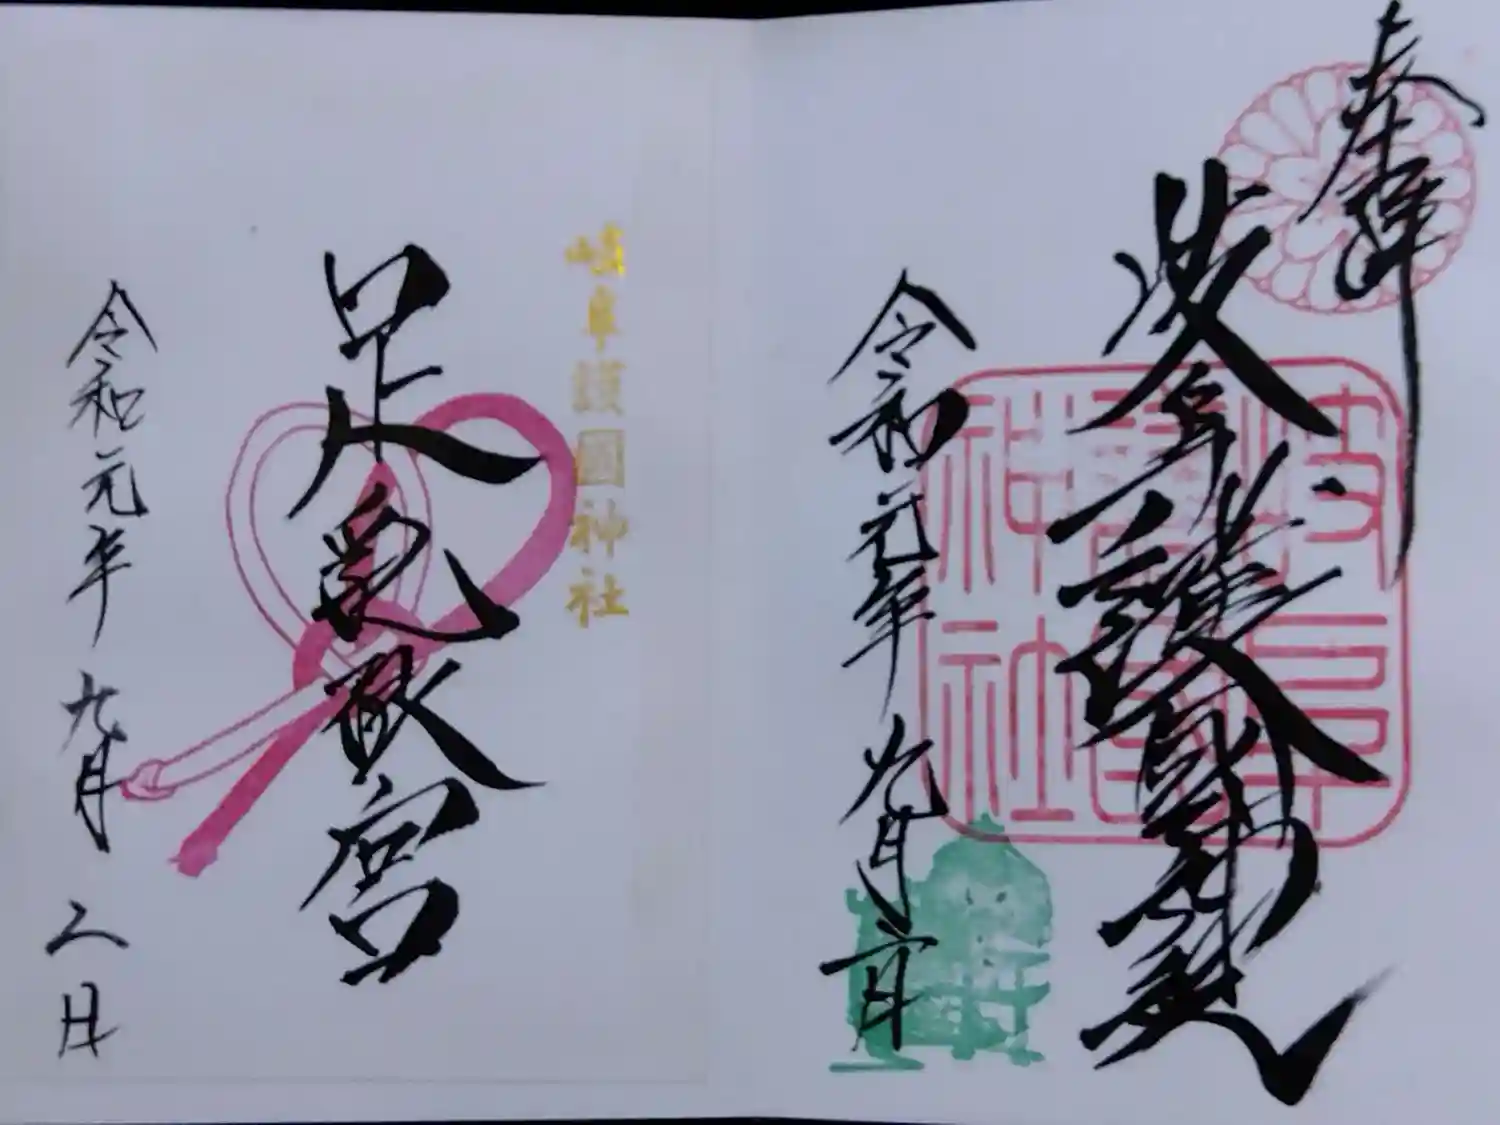 奉拝
岐阜護國神社
岐阜護國神社
令和元年九月六日
岐阜護國神社
足宮
令和元年九月六日